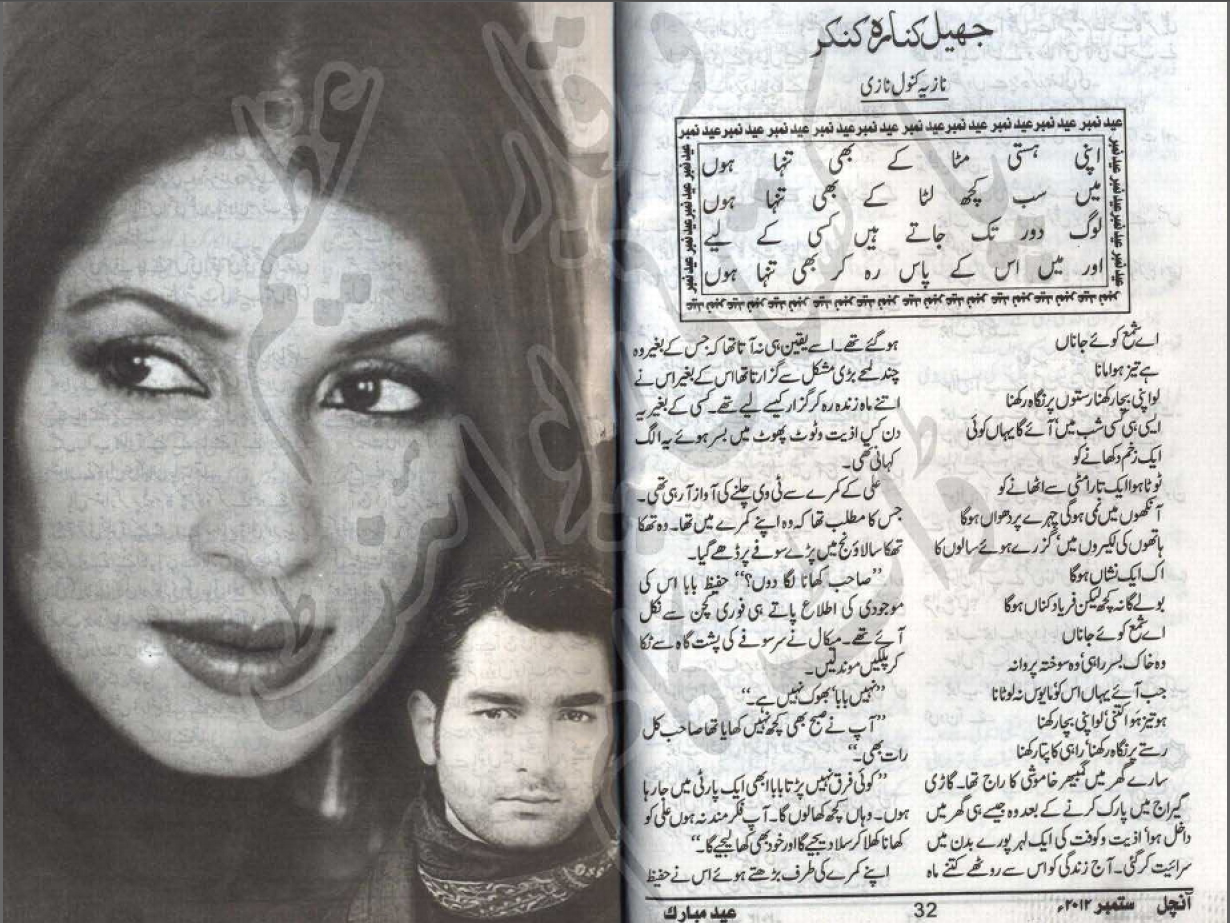 جھیل کنارہ کنکر
نازیہ کنول نازی
عید نمبر عید نمبر عید نمبر عید نمبر عید نمبر عید نمبر عید نمبر عید نمبر عید نمبر عید نمبر
اپنی ہستی مٹا کے بھی تنہا ہوں
میں سب کچھ لٹا کے بھی تنہا ہوں
لوگ دور تک جاتے ہیں کسی کے لیے
اور میں اس کے پاس رہ کر بھی تنہا ہوں
اے شمع کوئے جاناں
ہے تیز ہوا مانا
لو اپنی بچا رکھنا رستوں پر نگاہ رکھنا
ایسی ہی کسی شب میں‘ آئے گا یہاں کوئی
ایک زخم دکھانے کو
ٹوٹا ہوا ایک تارا مٹی سے اٹھانے کو
آنکھوں میں نمی ہوگی چہرے پر دھواں ہوگا
ہاتھوں کی لکیروں میں‘ گزرے ہوئے سالوں کا
اک ایک نشاں ہوگا
بولے گا نہ کچھ لیکن فریاد کناں ہوگا
اے شمع کوئے جاناں
وہ خاک بسر راہی‘ وہ سوختہ پروانہ
جب آئے یہاں اس کو مایوس نہ لوٹانا
ہو تیز ہوا کتنی‘ لو اپنی بچا رکھنا
رستے پر نگاہ رکھنا‘ راہی کا پتا رکھنا
سارے گھر میں گمبھیر خاموشی کا راج تھا۔ گاڑی
گیراج میں پارک کرنے کے بعد وہ جیسے ہی گھر میں
داخل ہوا‘ اذیت و کوفت کی ایک لہر پورے بدن میں
سرائیت کرگئی۔ آج زندگی کو اس سے روٹھے کتنے ماہ
ہوگئے تھے۔ اسے یقین ہی نہ آتا تھا کہ جس کے بغیر وہ
چند لمحے بڑی مشکل سے گزارتا تھا اس کے بغیر اس نے
اتنے ماہ زندہ رہ کر گزار کیسے لیے تھے۔ کسی کے بغیر یہ
دن کس اذیت و ٹوٹ پھوٹ میں بسر ہوئے یہ الگ
کہانی تھی۔
علی کے کمرے سے ٹی وی چلنے کی آواز آرہی تھی۔
جس کا مطلب تھا کہ وہ اپنے کمرے میں تھا۔ وہ تھکا
تھکا سا لاؤنج میں پڑے صوفے پر ڈھے گیا۔
”صاحب کھانا لگا دوں؟“ حفیظ بابا اس کی
موجودی کی اطلاع پاتے ہی فوری کچن سے نکل
آئے تھے۔ میکال نے سر صوفے کی پشت گاہ سے ٹکا
کر پلکیں موند لیں۔
”نہیں بابا‘ بھوک نہیں ہے۔“
”آپ نے صبح بھی کچھ نہیں کھایا تھا صاحب کل
رات بھی۔“
”کوئی فرق نہیں پڑتا بابا ابھی ایک پارٹی میں جارہا
ہوں۔ وہاں کچھ کھالوں گا۔ آپ فکر مند نہ ہوں علی کو
کھانا کھلا کر سلا دیجیے گا اور خود بھی کھا لیجیے گا۔“
اپنے کمرے کی طرف بڑھتے ہوئے اس نے حفیظ
آنچل ستمبر ۲۰۱۲ء 32 عید مبارک